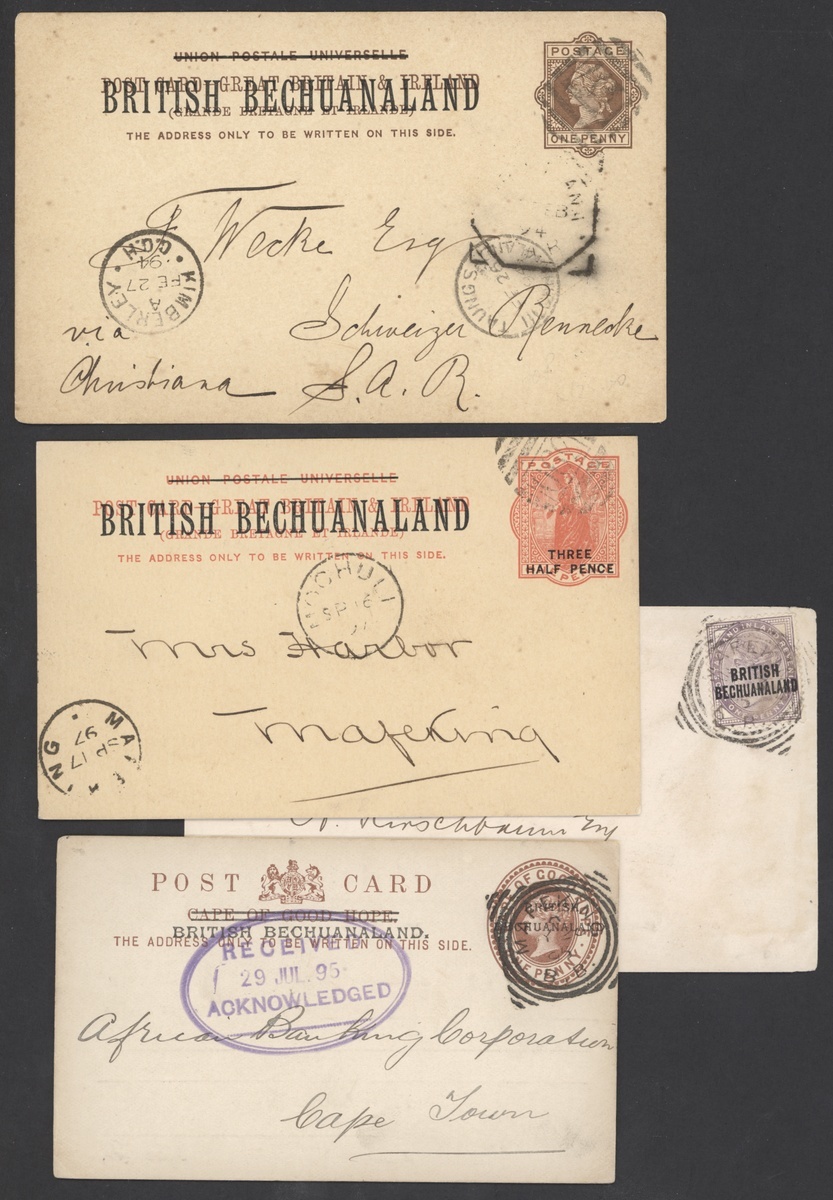 UNION POSTALE UNIVERSELLE
POST CARD-GREAT BRITAIN & IRELAND
BRITISH BECHUANALAND
(GRANDE BRETAGNE ET IRLANDE)
THE ADDRESS ONLY TO BE WRITTEN ON THIS SIDE.
POSTAGE
ONE PENNY
F Wecke Esq
KIMBERLEY
C.G.H
94
FE 27
A
TAUNGS
via Schweizer Renneke
Christiana S.A.R.
UNION POSTALE UNIVERSELLE
POST CARD-GREAT BRITAIN & IRELAND
BRITISH BECHUANALAND
(GRANDE BRETAGNE ET IRLANDE)
THE ADDRESS ONLY TO BE WRITTEN ON THIS SIDE.
POSTAGE
THREE
HALF PENCE
MOCHULI
SP 16
97
Mrs Harbor
Mafeking
SP 17
97
BRITISH
BECHUANALAND
Kirschbaum Esq
POST CARD
CAPE OF GOOD HOPE.
BRITISH BECHUANALAND.
THE ADDRESS ONLY TO BE WRITTEN ON THIS SIDE.
BRITISH
BECHUANALAND
HALF PENNY
RECEIVED
29 JUL. 95
ACKNOWLEDGED
African Banking Corporation
Cape Town